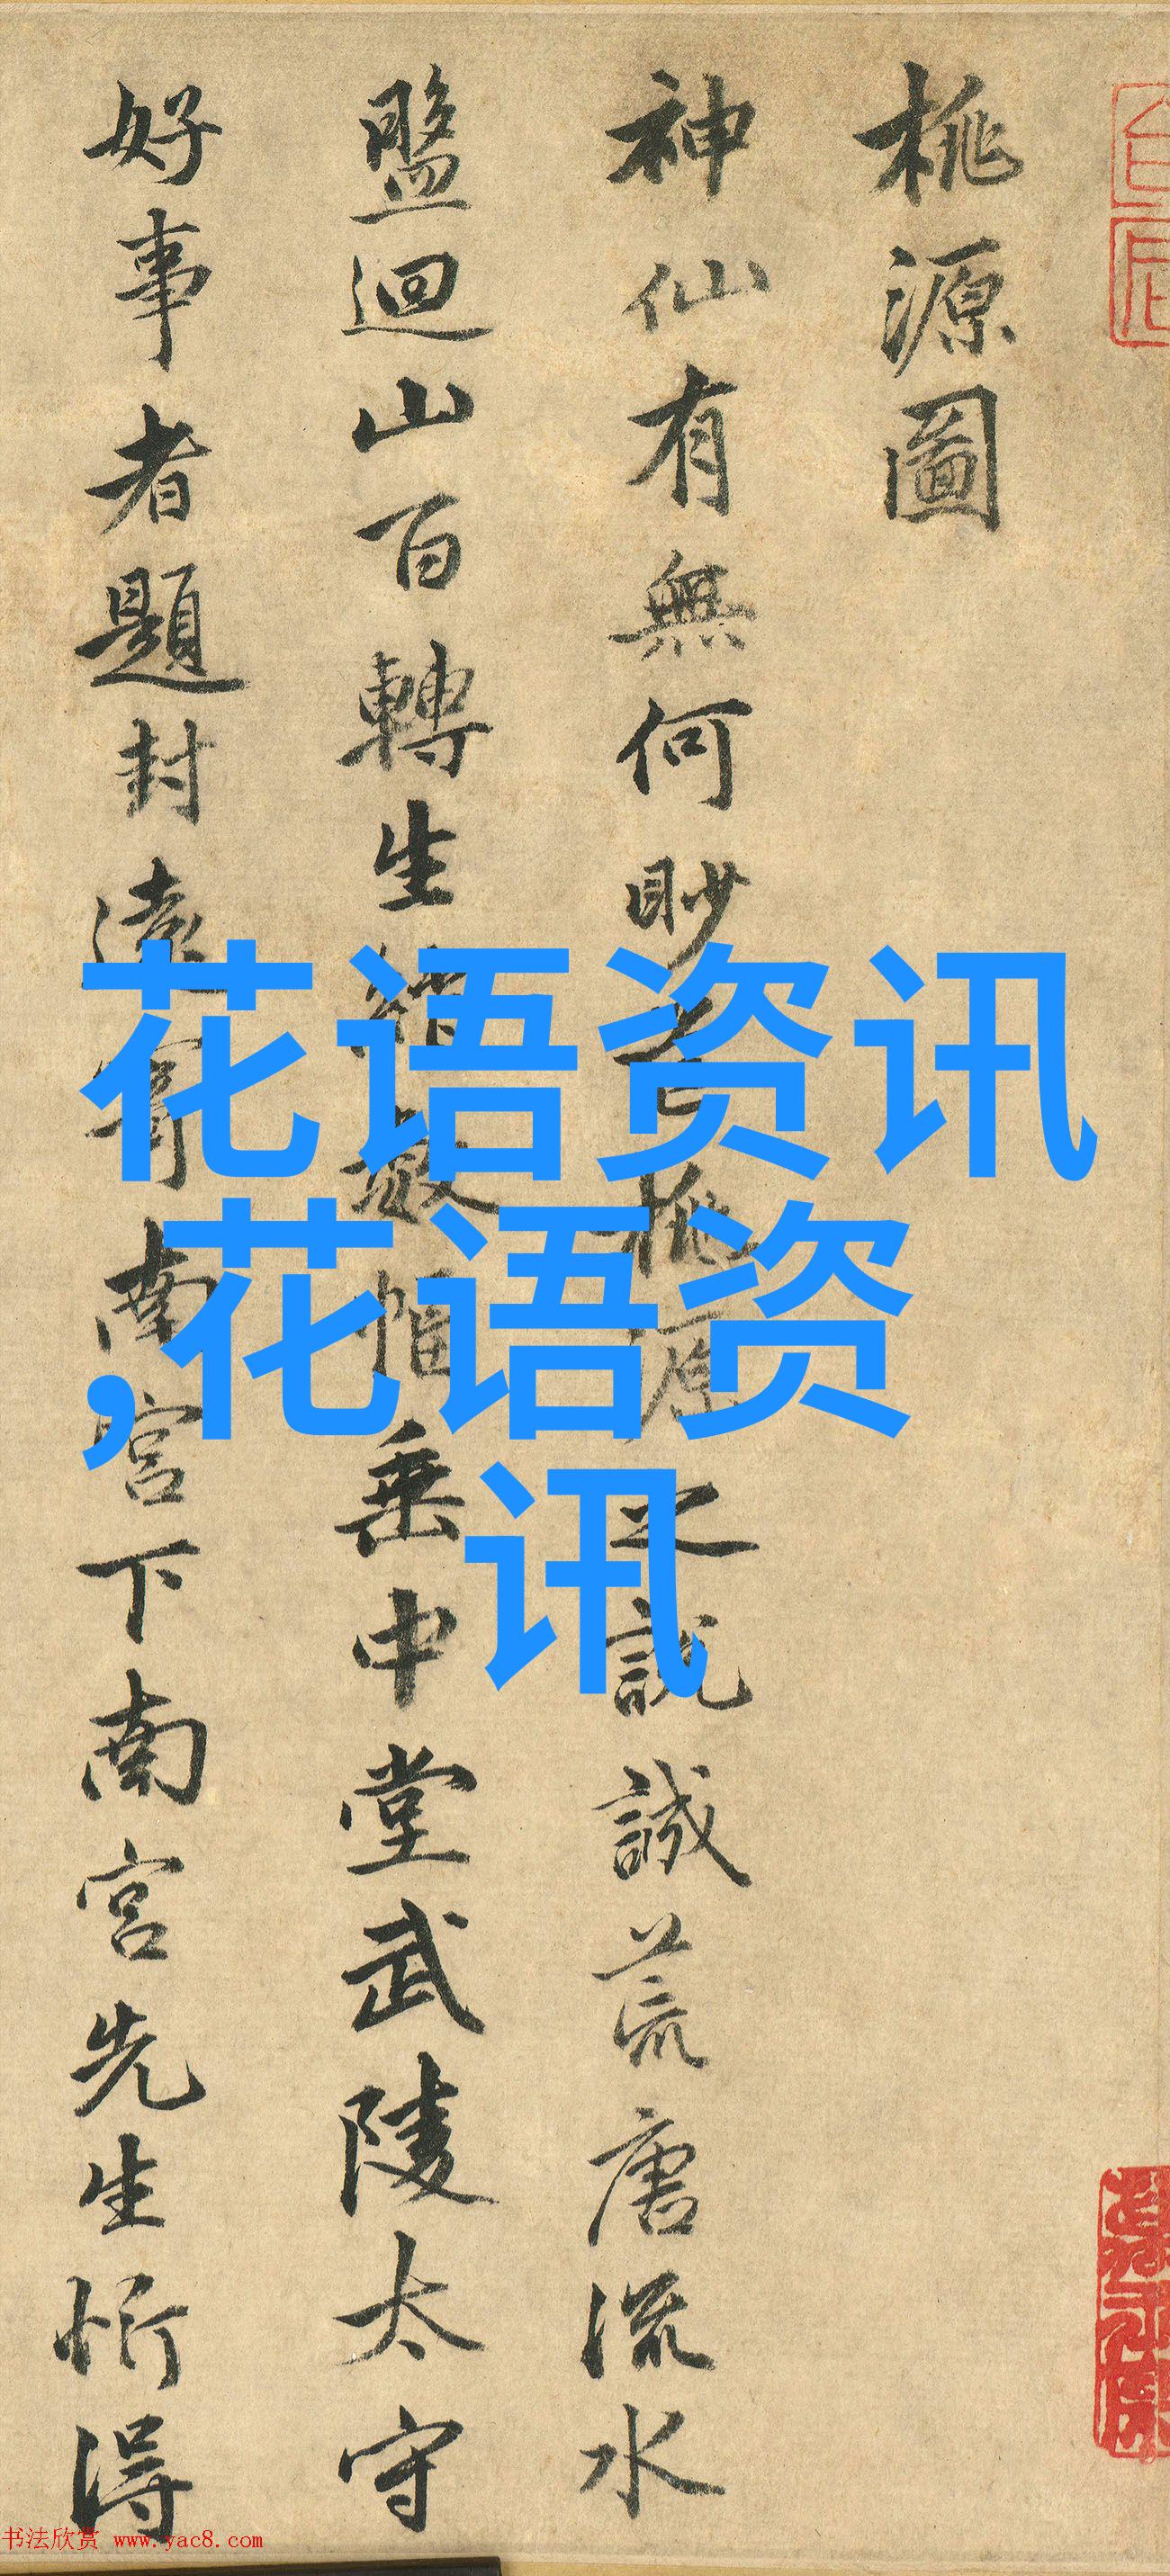 桃源圖
神仙有無何眇芒桃原之說誠荒唐流水
盤迴山百轉生綃數幅垂中堂武陵太守
好事者題封遠寄南宮下南宮先生忻得
花语资讯
,花语资
讯
书法欣赏 www.yac8.com